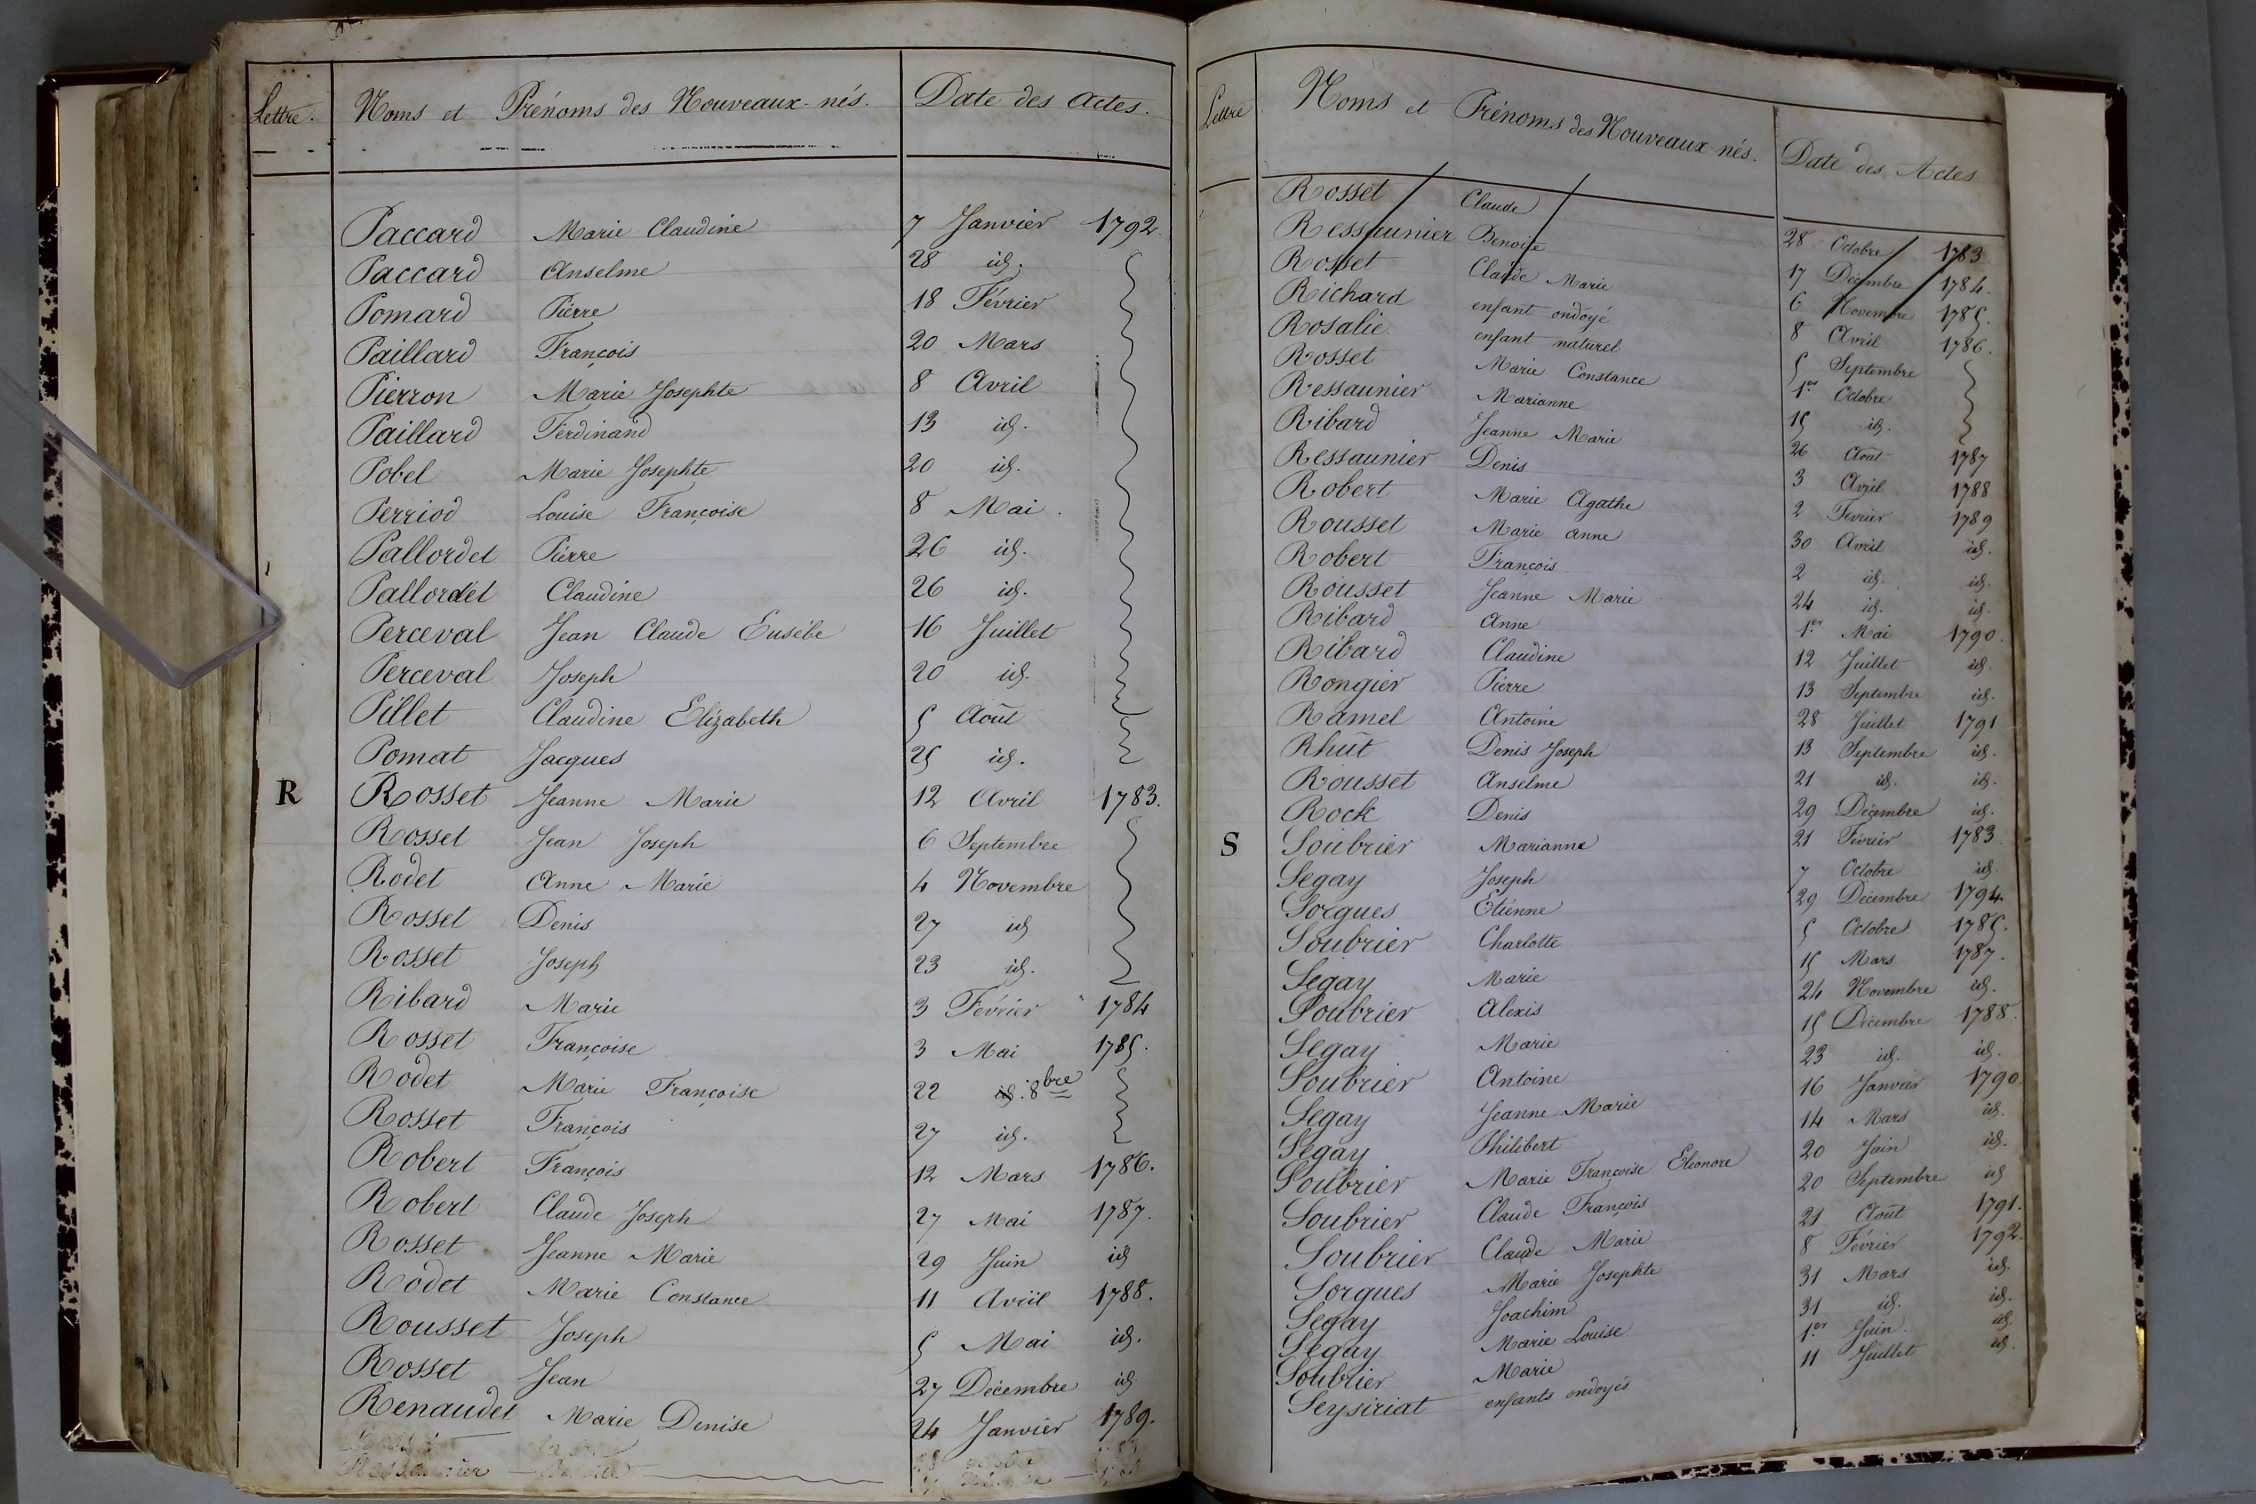 Lettre. Noms et Prénoms des Nouveaux-nés. Date des Actes.
Paccard Marie Claudine 7 Janvier 1792.
Paccard Anselme 28 id.
Pomard Pierre 18 Février
Paillard François 20 Mars
Pierron Marie Josephte 8 Avril
Paillard Ferdinand 13 id.
Pobel Marie Josephte 20 id.
Perriod Louise Françoise 8 Mai.
Pallordet Pierre 26 id.
Pallordet Claudine 26 id.
Perceval Jean Claude Eusébe 16 Juillet
Perceval Joseph 20 id.
Pillet Claudine Elizabeth 5 Août
Pomat Jacques 25 id.
R Rosset Jeanne Marie 12 Avril 1783.
Rosset Jean Joseph 6 Septembre
Rodet Anne Marie 4 Novembre
Rosset Denis 27 id
Rosset Joseph 23 id.
Ribard Marie 3 Février 1784
Rosset Françoise 3 Mai 1785.
Rodet Marie Françoise 22 id. 8bre
Rosset François 27 id.
Robert François 12 Mars 1786.
Robert Claude Joseph 27 Mai 1787.
Rosset Jeanne Marie 29 Juin id
Rodet Marie Constance 11 Avril 1788.
Rousset Joseph 5 Mai id.
Rosset Jean 27 Décembre id
Renaudet Marie Denise 24 Janvier 1789.
Lettre Noms et Prénoms des Nouveaux-nés. Date des Actes
Rosset Claude 28 Octobre 1783
Ressaunier Benoite 17 Décembre 1784.
Rosset Claude Marie 6 Novembre 1785.
Richard enfant ondoyé 8 Avril 1786.
Rosalie enfant naturel 5 Septembre
Rosset Marie Constance 1er Octobre
Ressaunier Marianne 15 id.
Ribard Jeanne Marie 26 Août 1787
Ressaunier Denis 3 Avril 1788
Robert Marie Agathe 2 Février 1789
Rousset Marie anne 30 Avril id.
Robert François 2 id. id.
Rousset Jeanne Marie 24 id. id.
Ribard Anne 1er Mai 1790.
Ribard Claudine 12 Juillet id.
Rongier Pierre 13 Septembre id.
Ramel Antoine 28 Juillet 1791
Rhut Denis Joseph 13 Septembre id.
Rousset Anselme 21 id. id.
Rock Denis 29 Décembre id.
S Soubrier Marianne 21 Février 1783
Segay Joseph 7 Octobre id.
Sorgues Etienne 29 Décembre 1794
Soubrier Charlotte 5 Octobre 1785.
Segay Marie 15 Mars 1787.
Soubrier Alexis 24 Novembre id.
Segay Marie 15 Décembre 1788.
Soubrier Antoine 23 id. id.
Segay Jeanne Marie 16 Janvier 1790.
Segay Philibert 14 Mars id.
Soubrier Marie Françoise Eléonore 20 Juin id.
Soubrier Claude François 20 Septembre id
Soubrier Claude Marie 21 Août 1791.
Sorgues Marie Josephte 8 Février 1792.
Segay Joachim 31 Mars id.
Segay Marie Louise 31 id. id.
Soubrier Marie 1er Juin id.
Seysiriat enfants ondoyés 11 Juillet id.